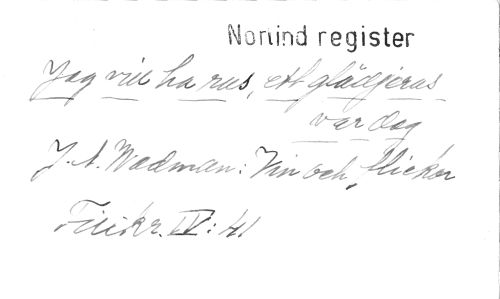 Nonind register
Jag vill ha rus, ett glädjerus
var dag
J. A. Wadman: Vin och flickor
IV: 41